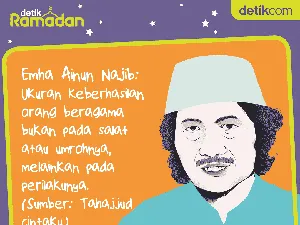 detik
Ramadan
detikcom
Emha Ainun Najib:
Ukuran keberhasilan
orang beragama
bukan pada salat
atau umrohnya,
melainkan pada
perilakunya.
(Sumber: Tahajjud
cintaku)